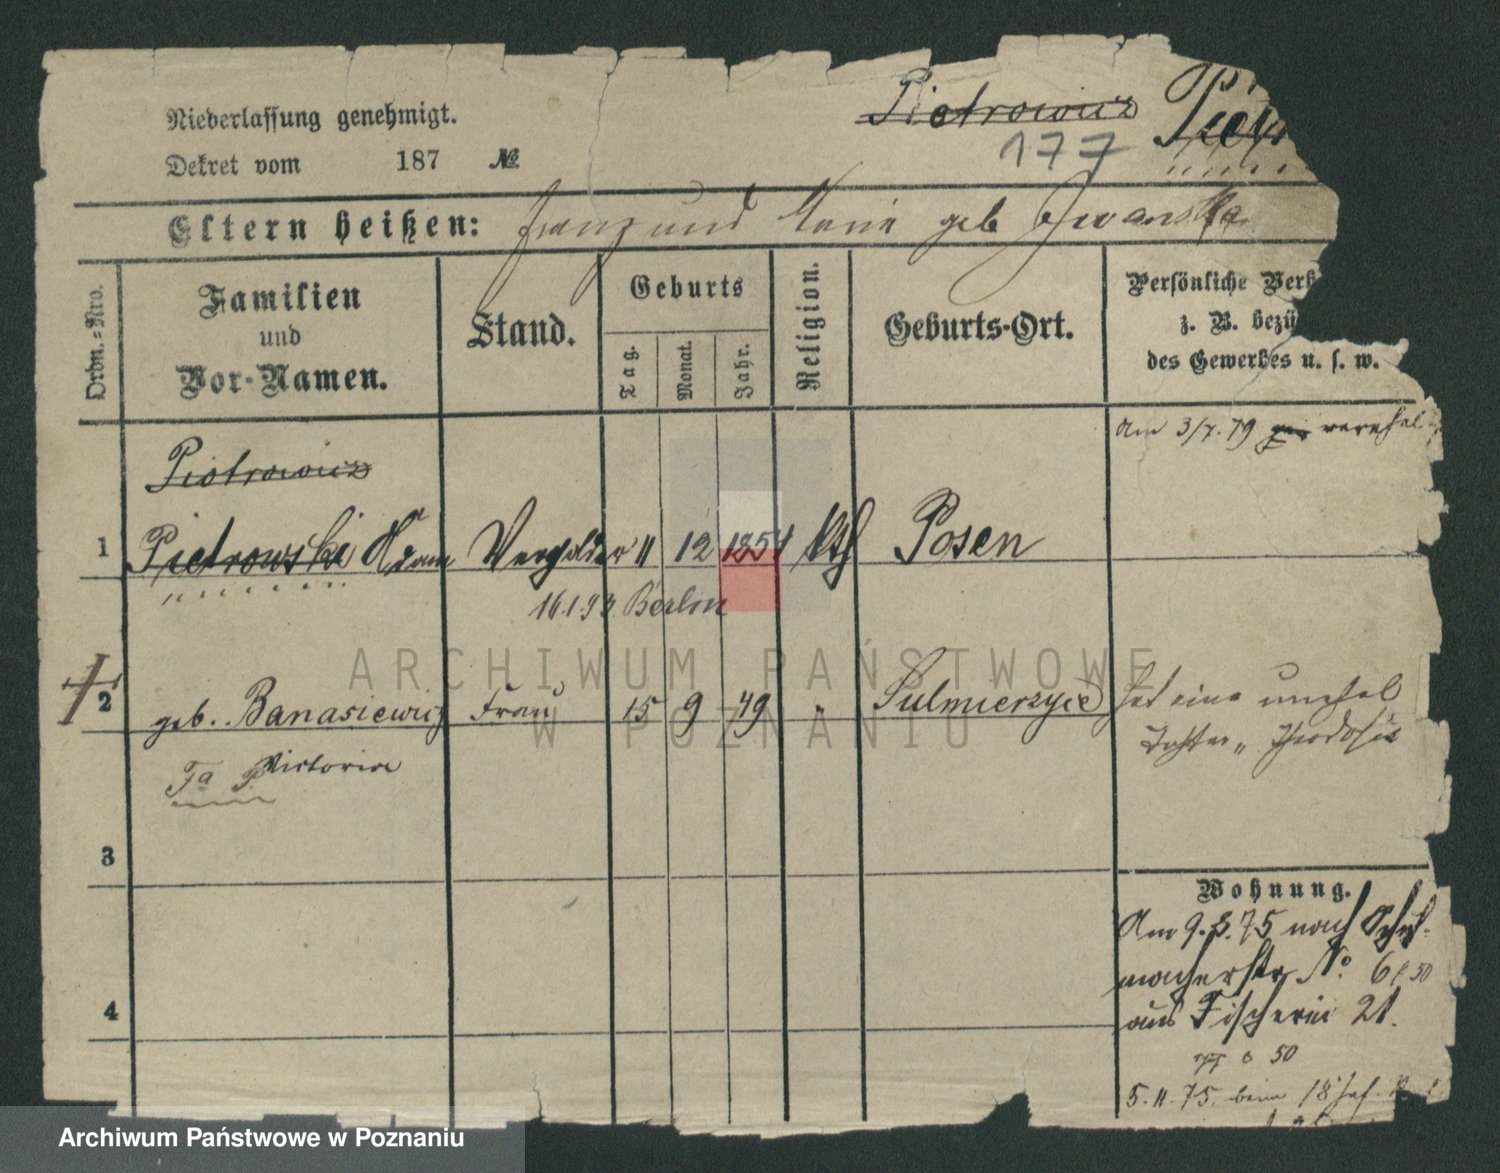 Niederlassung genehmigt.
Dekret vom 187 №
Pietrowicz
177
Eltern heißen: Franz und Marie geb Iwanska
Ordn.-Nro.
Familien
und
Vor-Namen.
Stand.
Geburts
Tag.
Monat.
Jahr.
Religion.
Geburts-Ort.
Persönliche Verh
z. B. bezü
des Gewerbes u. s. w.
Am 3/7. 79 verehel
Piotrowicz
1 Pietrowski Adam Vergolder 11 12 1854 kth Posen
16.1.93 Berlin
2 geb. Banasiewicz Frau 15 9 49 " Sulmierzyce hat eine unehel
Tochter " Theodosia
Victoria
3
Wohnung.
Am 9. 8. 75 nach Schuh-
macherstr No. 6 f. 50
aus Fischerei 21.
50
5. 11. 75. beim 18
4
ARCHIWUM PAŃSTWOWE
W POZNANIU
Archiwum Państwowe w Poznaniu